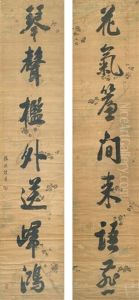 花氣簷間來語燕
琴聲檻外送歸鴻